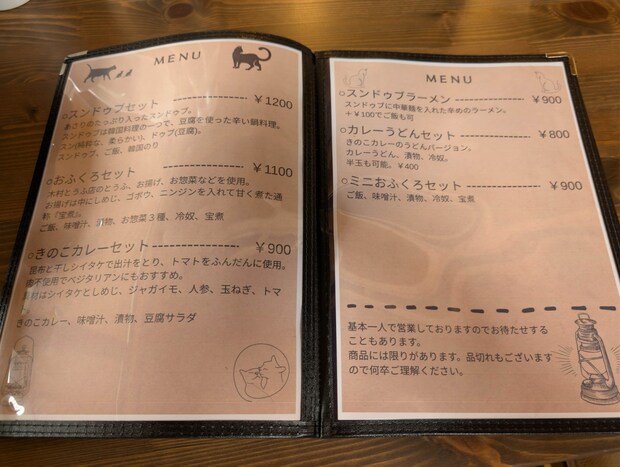 MENU
○スンドゥブセット ¥1200
あさりのたっぷり入ったスンドゥブ。
スンドゥブは韓国料理の一つで、豆腐を使った辛い鍋料理。
スン(純粋な、柔らかい)、ドゥブ(豆腐)。
スンドゥブ、ご飯、韓国のり
○おふくろセット ¥1100
木村とうふ店のとうふ、お揚げ、お惣菜などを使用。
お揚げは中にしめじ、ゴボウ、ニンジンを入れて甘く煮た通
称『宝煮』。
ご飯、味噌汁、漬物、お惣菜3種、冷奴、宝煮
○きのこカレーセット ¥900
昆布と干しシイタケで出汁をとり、トマトをふんだんに使用。
肉不使用でベジタリアンにもおすすめ。
具材はシイタケとしめじ、ジャガイモ、人参、玉ねぎ、トマ
きのこカレー、味噌汁、漬物、豆腐サラダ
MENU
○スンドゥブラーメン ¥900
スンドゥブに中華麺を入れた辛めのラーメン。
+¥100でご飯も可
○カレーうどんセット ¥800
きのこカレーのうどんバージョン。
カレーうどん、漬物、冷奴。
半玉も可能。¥400
○ミニおふくろセット ¥900
ご飯、味噌汁、漬物、冷奴、宝煮
基本一人で営業しておりますのでお待たせする
こともあります。
商品には限りがあります。品切れもございます
ので何卒ご理解ください。